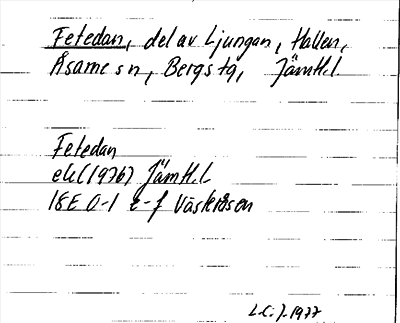 Fetedan, del av Ljungan, Hallen,
Åsarne sn, Bergs tg, Jämtl.l.
Fetedan
ek (1976) Jämtl.l
18E 0-1 e-f Västeråsen
L.C.J. 1977